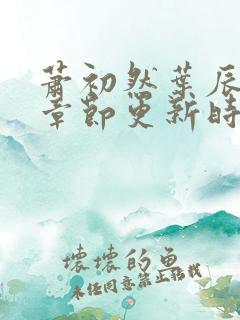 萧初然叶辰
章节更新时
坏坏的鱼
未经同意禁止转载